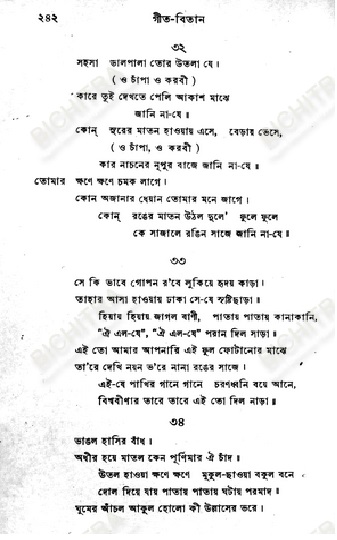 ২৪২ গীত-বিতান
৩২
সহসা ডালপালা তোর উতলা যে।
( ও চাঁপা ও করবী )
কারে তুই দেখতে পেলি আকাশ মাঝে
জানি না-যে॥
কোন্ সুরের মাতন হাওয়ায় এসে, বেড়ায় ভেসে,
( ও চাঁপা, ও করবী )
কার নাচনের নূপুর বাজে জানি না-যে॥
তোমার ক্ষণে ক্ষণে চমক লাগে।
কোন অজানার ধেয়ান তোমার মনে জাগে।
কোন্ রঙের মাতন উঠল দুলে' ফুলে ফুলে
কে সাজালে রঙিন সাজে জানি না-যে॥
৩৩
সে কি ভাবে গোপন র'বে লুকিয়ে হৃদয় কাড়া।
তাহার আসা হাওয়ায় ঢাকা সে-যে সৃষ্টিছাড়া॥
হিয়ায় হিয়ায় জাগল বাণী, পাতায় পাতায় কানাকানি,
"ঐ এল-যে", "ঐ এল-যে" পরান দিল সাড়া॥
এই তো আমার আপনারি এই ফুল ফোটানোর মাঝে
তা'রে দেখি নয়ন ভ'রে নানা রঙের সাজে।
এই-যে পাখির গানে গানে চরণধ্বনি বয়ে আনে,
বিশ্ববীণার তারে তারে এই তো দিল নাড়া॥
৩৪
ভাঙল হাসির বাঁধ।
অধীর হয়ে মাতল কেন পূর্ণিমার ঐ চাঁদ॥
উতল হাওয়া ক্ষণে ক্ষণে মুকুল-ছাওয়া বকুল বনে
দোল দিয়ে যায় পাতায় পাতায় ঘটায় পরমাদ॥
ঘুমের আঁচল আকুল হোলো কী উল্লাসের ভরে।